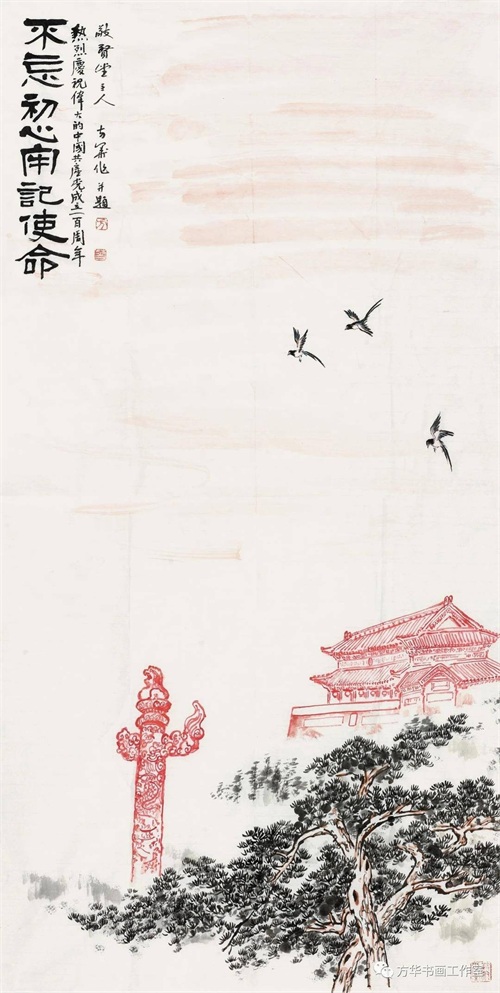 不忘初心牢记使命
热烈慶祝偉大的中國共產党成立一百周年
敬賢堂主人 方華作并題
方华书画工作室